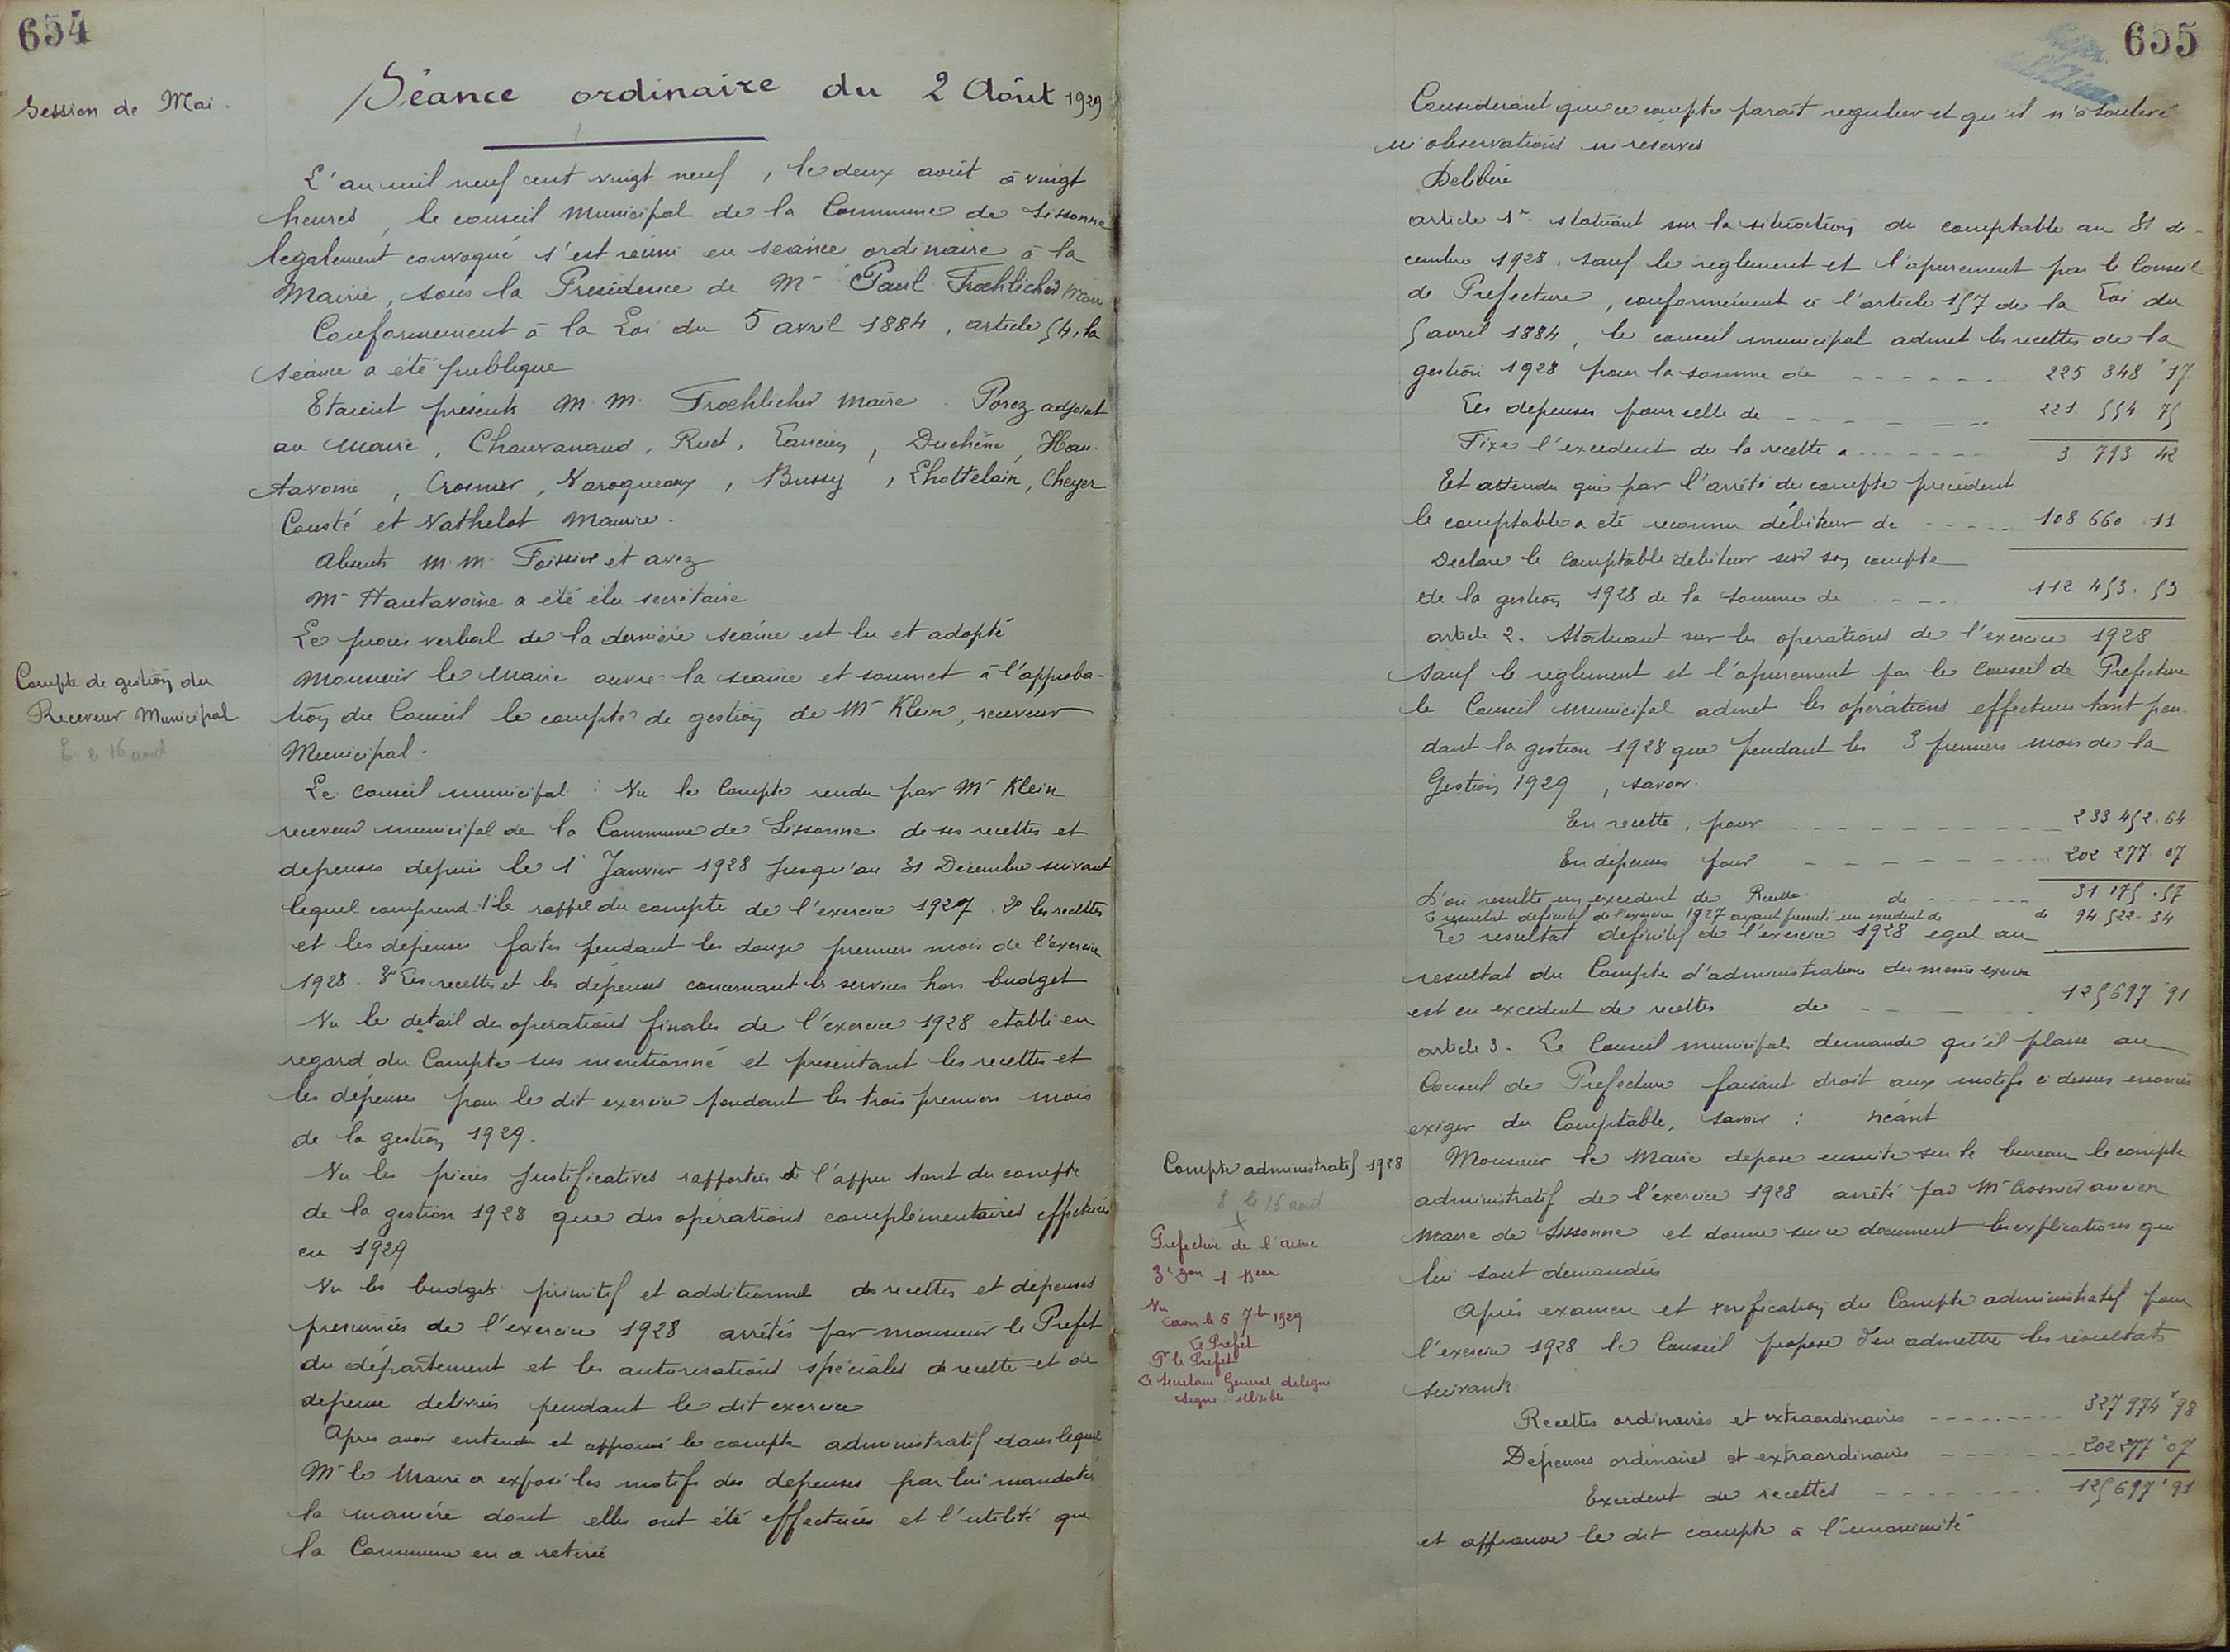 654
Session de Mai.
Séance ordinaire du 2 Août 1929
L'an mil neuf cent vingt neuf, le deux août à vingt
heures, le conseil Municipal de la Commune de Sissonne
legalement convoqué s'est réuni en seance ordinaire à la
Mairie, sous la Presidence de Mr Paul Froehlicher Maire
Conformement à la Loi du 5 avril 1884, article 54, la
séance a été publique
Etaient présents M.M. Froehlicher Maire. Porez adjoint
au Maire, Chauvanaud, Ruet, Lancien, Duchêne, Hau-
tavoine, Crosnier, Varoqueaux, Bussy, Lhottelain, Cheyer
Cousté et Nathelot Maurice.
Absents M.M. Foissier et avez
Mr Hautavoine a été élu secrétaire
Le procès verbal de la dernière séance est lu et adopté
Compte de gestion du
Receveur Municipal
E le 16 août
Monsieur le Maire ouvre la seance et soumet à l'approba-
tion du Conseil le compte de gestion de Mr Klein, receveur
Municipal.
Le Conseil municipal : Vu le Compte rendu par Mr Klein
receveur municipal de la Commune de Sissonne de ses recettes et
depenses depuis le 1er Janvier 1928 Jusqu'au 31 Décembre suivant
lequel comprend 1° le rappel du compte de l'exercice 1927. 2° les recettes
et les depenses faites pendant les douze premiers mois de l'exercice
1928. 3° Les recettes et les dépenses concernant les services hors budget
Vu le detail des opérations finales de l'exercice 1928 etabli en
regard du Compte sus mentionné et presentant les recettes et
les dépenses pour le dit exercice pendant les trois premiers mois
de la gestion 1929.
Vu les pièces Justificatives rapportées à l'appui tant du compte
de la gestion 1928 que des opérations complémentaires effectuées
en 1929
Vu les budgets primitif et additionnel des recettes et dépenses
presumées de l'exercice 1928 arrêtés par monsieur le Prefet
du département et les autorisations spéciales de recette et de
depense delivrées pendant le dit exercice
Apres avoir entendu et approuvé le compte administratif dans lequel
Mr le Maire a exposé les motifs des depenses par lui mandatées
la manière dont elles ont été effectuées et l'utilité que
la Commune en a retirée
655
Considerant que ce compte parait regulier et qu'il n'a soulevé
ni observations ni réserves
Delibère
article 1er statuant sur la situation du comptable au 31 dé-
cembre 1928, sauf le reglement et l'apurement par le Conseil
de Prefecture, conformément à l'article 157 de la Loi du
5 avril 1884, le conseil municipal admet les recettes de la
gestion 1928 pour la somme de 225 348 17
Les depenses pour celle de 221 554 75
Fixe l'excedent de la recette a 3 793 42
Et attendu que par l'arrêté du compte précedent
le comptable a été reconnu débiteur de 108 660.11
Declare le Comptable debiteur sur son compte
de la gestion 1928 de la somme de 112 453.53
article 2. Statuant sur les opérations de l'exercice 1928
sauf le reglement et l'apurement par le Conseil de Prefecture
le Conseil Municipal admet les opérations effectuées tant pen-
dant la gestion 1928 que pendant les 3 premiers mois de la
Gestion 1929, savoir.
En recette, pour 233 452.64
En depenses pour 202 277 07
D'où resulte un excedent de Recette de 31 175.57
Le resultat definitif de l'exercice 1927 ayant presenté un excedent de de 94 522.34
Le resultat definitif de l'exercice 1928 egal au
resultat du Compte d'administration du meme exercice
est en excedent de recettes de 125 697.91
article 3. Le Conseil municipal demande qu'il plaise au
Conseil de Prefecture faisant droit aux motifs ci dessus enoncés
exiger du Comptable, savoir : néant
Compte administratif 1928
E le 16 août
Prefecture de l'aisne
3e Don 1 Beau
Vu
Laon le 6 7bre 1929
Le Prefet
Pr le Prefet
Le Secretaire General delegue
signé : illisible
Monsieur le Maire depose ensuite sur le bureau le compte
administratif de l'exercice 1928 arrêté par Mr Crosnier ancien
Maire de Sissonne et donne sur ce document les explications qui
lui sont demandées
Après examen et verification du Compte administratif pour
l'exercice 1928 le Conseil propose d'en admettre les résultats
suivants
Recettes ordinaires et extraordinaires 327 974 98
Dépenses ordinaires et extraordinaires 202 277 07
Excedent de recettes 125 697 91
et approuve le dit compte à l'unanimité